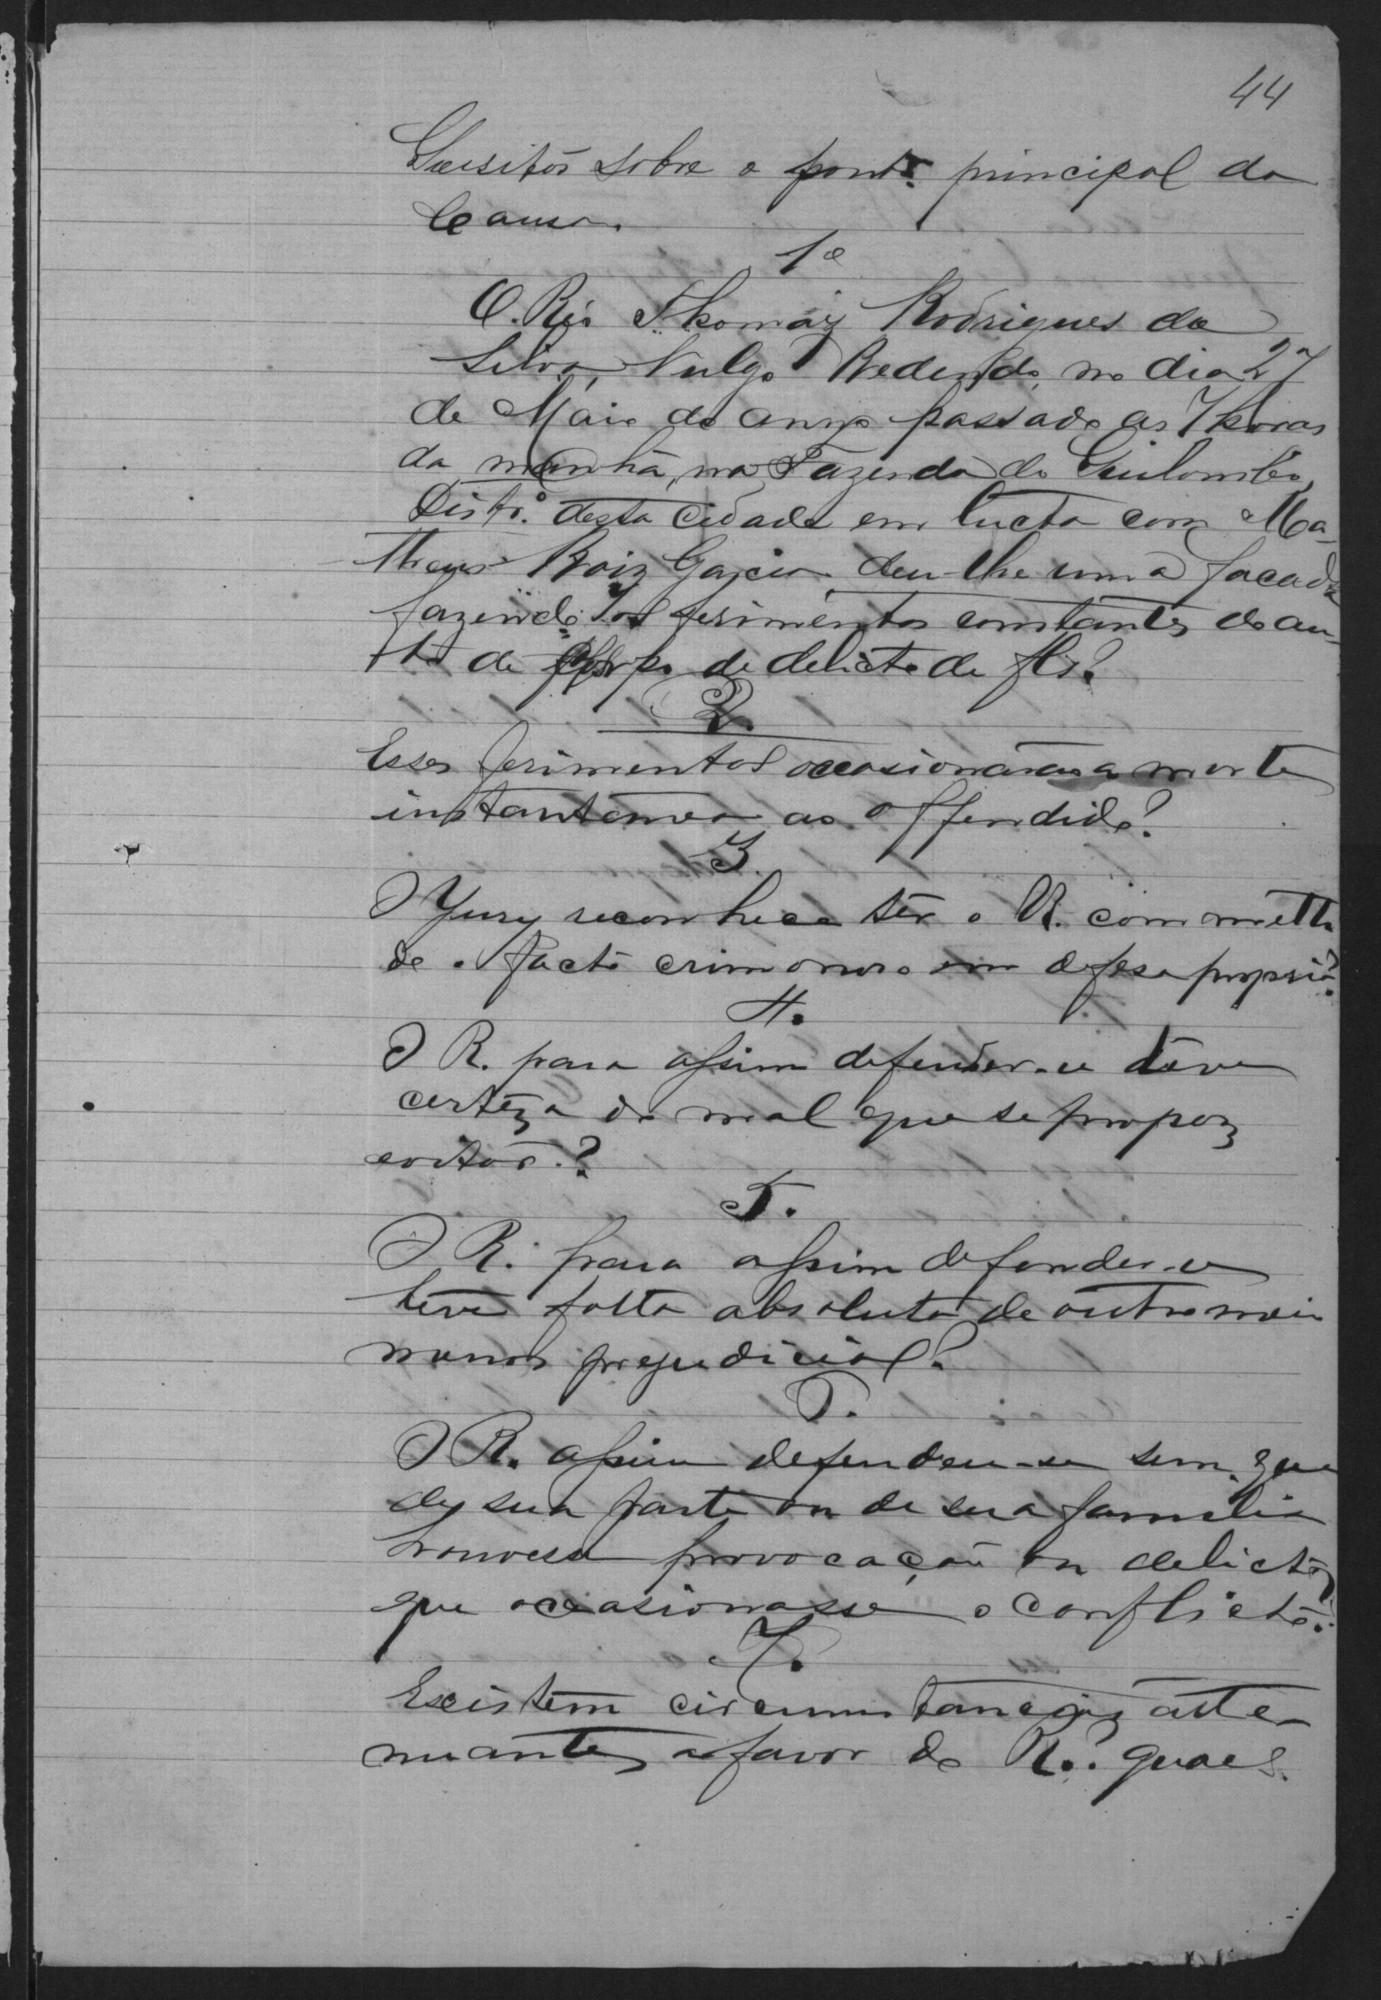 44
Quesitos sobre o ponto principal da
Causa.
1º
O. Réo Thomaz Rodrigues da
Silva, Vulgo Redondo, no dia 27
de Maio do anno passado as 7 horas
da manhã, na Fazenda do Quilombo,
Distr.º desta Cidade em lucta com Ma-
theus Roiz Garcia deu-lhe uma facada
fazendo os ferimentos constantes do au-
to de Corpo de delicto de fls?
2.
Esses ferimentos occasionárão a morte
instantanea ao offendido?
3.
O Jury reconhece ter o R. committi
do o facto criminoso em defesa propria?
4.
O R. para assim defender-se teve
certeza do mal que se propoz
evitar.?
5.
O R. para assim defender-se
teve falta absoluta de outro meio
menos prejudicial?
6.
O R. assim defendeu-se sem que
de sua parte ou de sua familia
houvesse provocação ou delicto
que occasionasse o conflicto?
7.
Existem circumstancias atte-
nuantes a favor do R.? quaes.